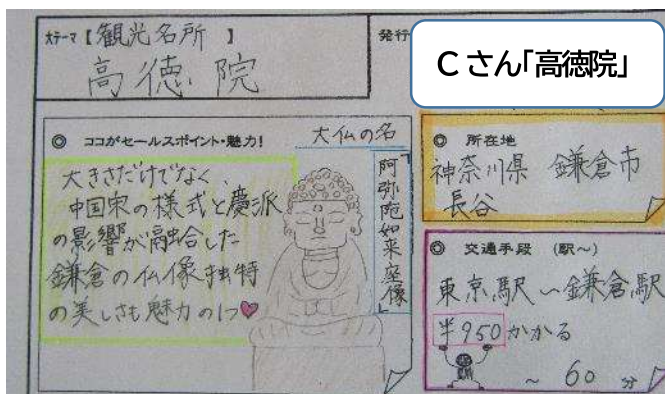 テーマ【観光名所】
高徳院
発行
Cさん「高徳院」
◎ ココがセールスポイント・魅力!
大仏の名
大きさだけでなく、
中国宋の様式と慶派
の影響が融合した
鎌倉の仏像独特
の美しさも魅力の1つ
「阿弥陀如来座像」
◎ 所在地
神奈川県 鎌倉市
長谷
◎ 交通手段 (駅~)
東京駅~鎌倉駅
950かかる
~ 60 分